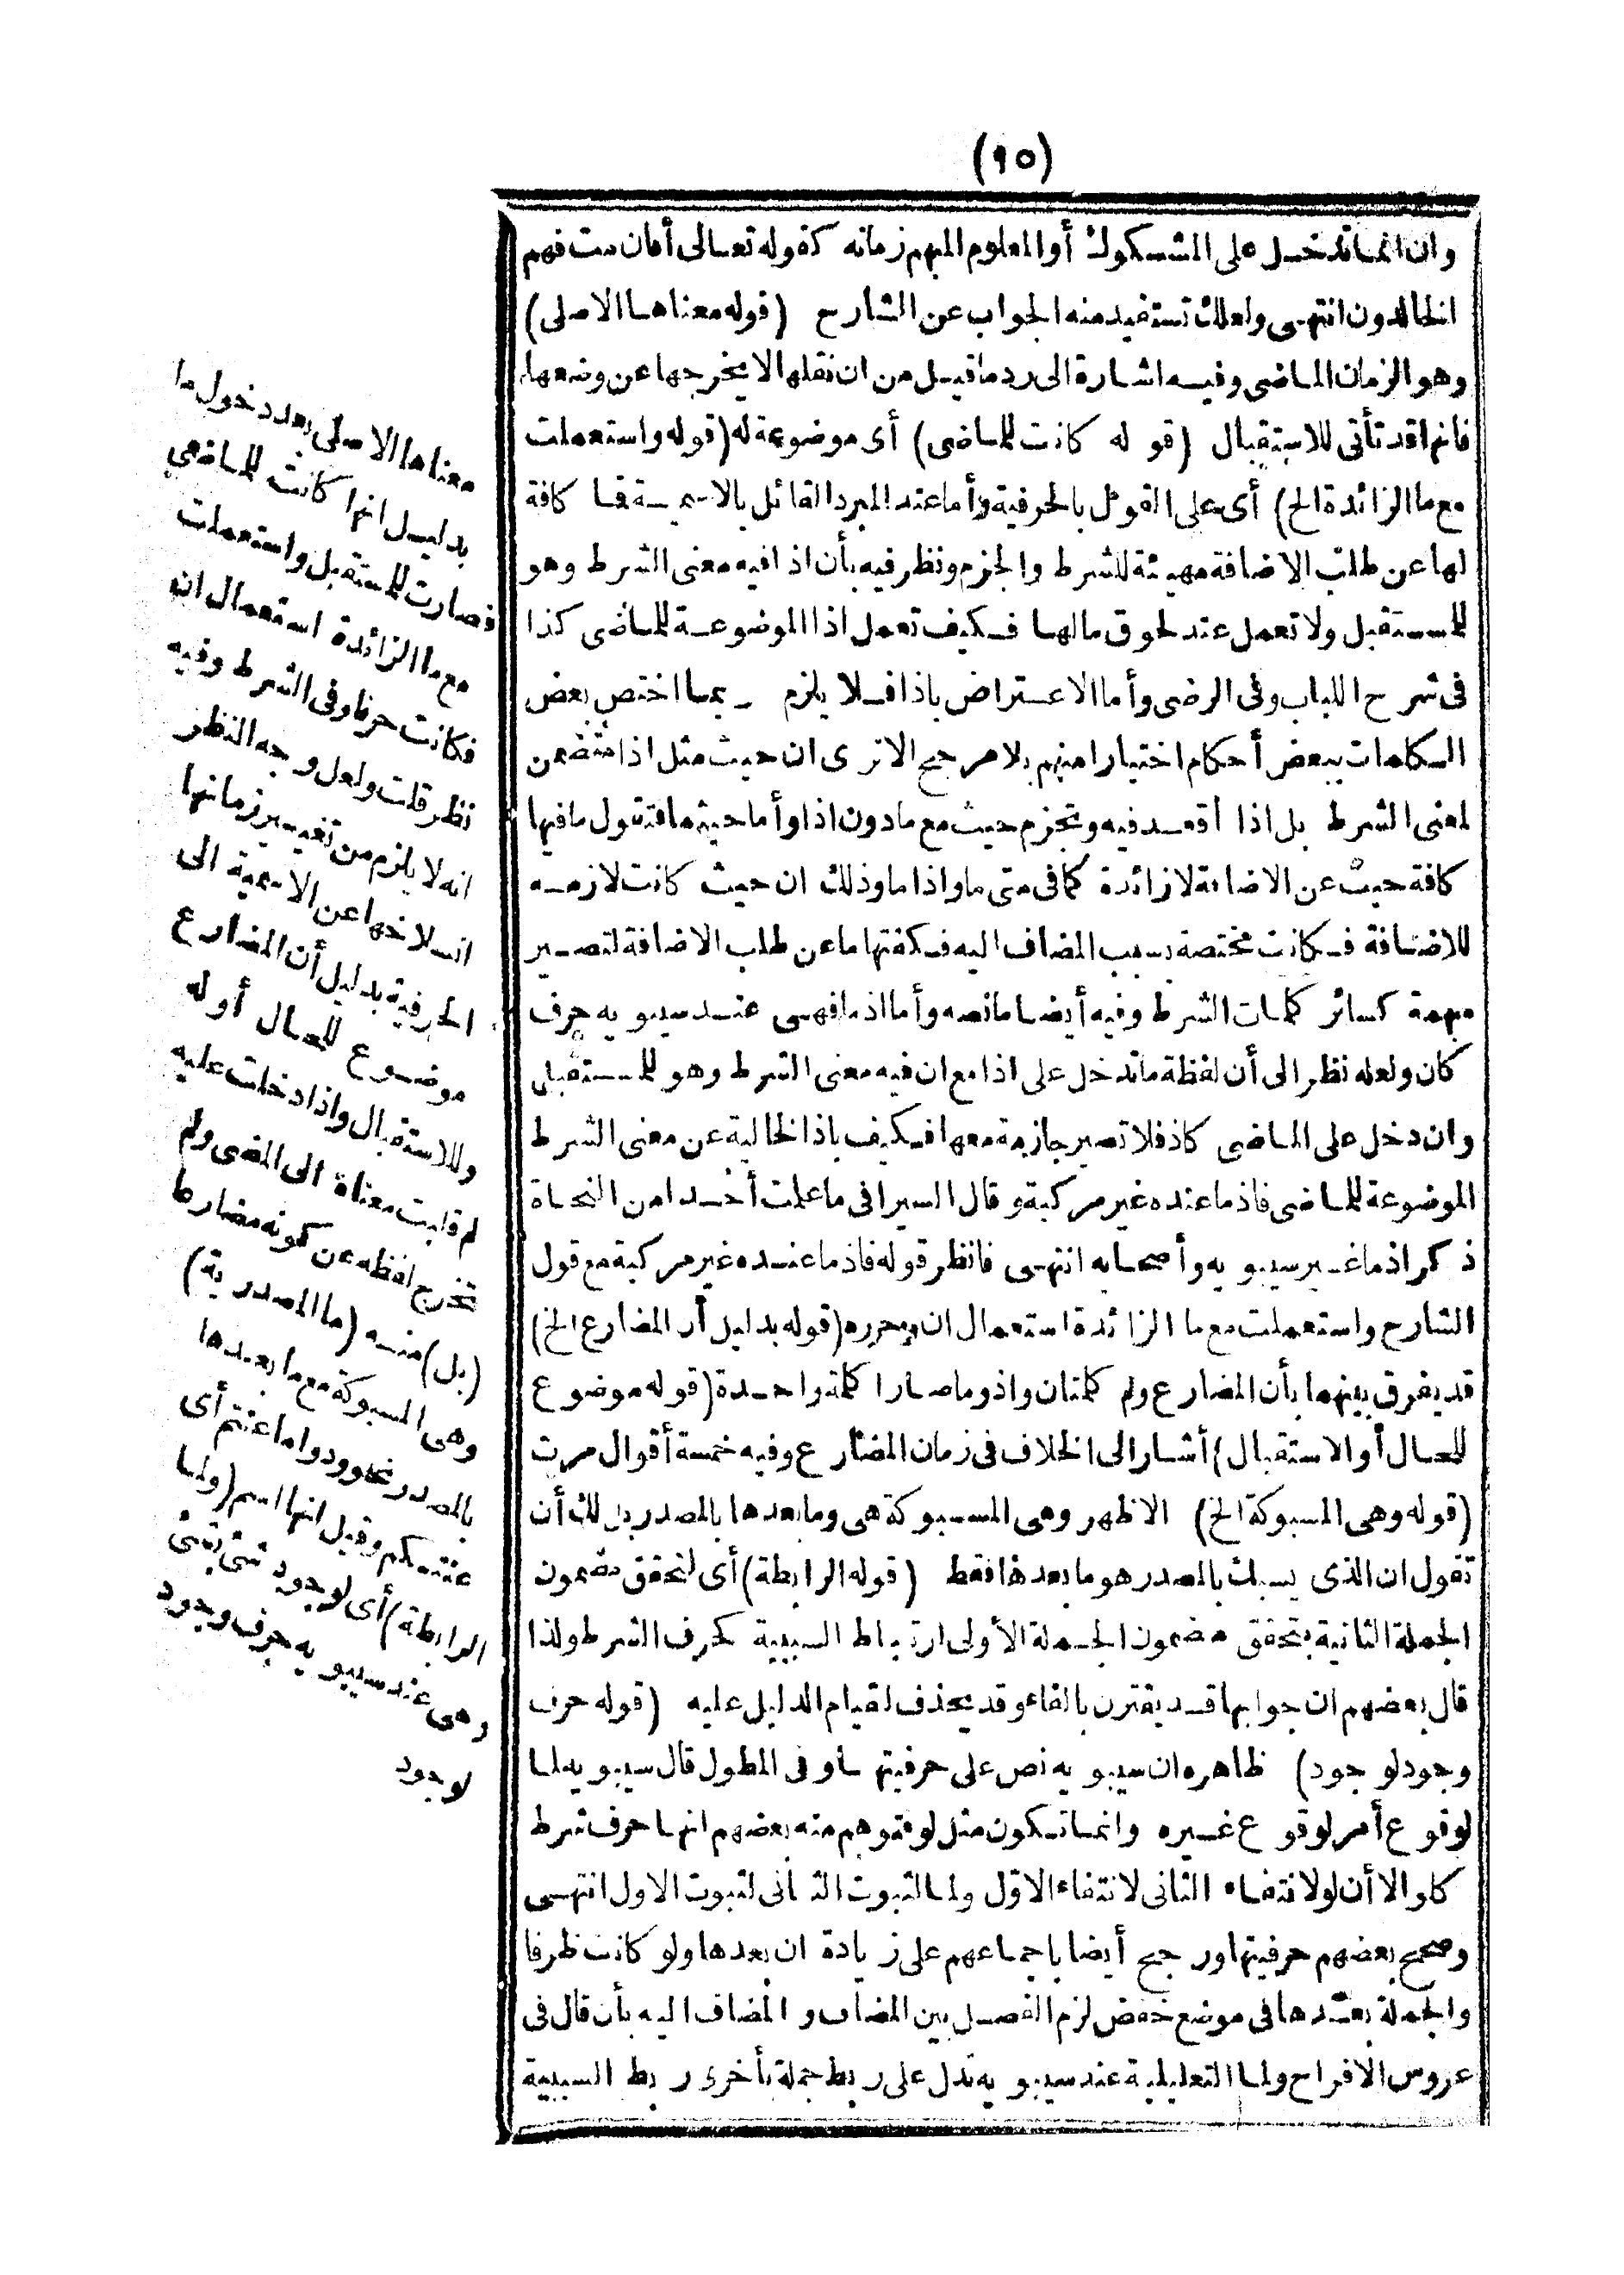 (٩٥)
وان انما تدخل على المشكوك أو المعلوم المبهم زمانه كقوله تعالى أفان مت فهم
الخالدون انتهى ولعلك تستفيد منه الجواب عن الشارح (قوله معناها الاصلى)
وهو الزمان الماضى وفيه اشارة الى رد ما قيل من ان نقلها لا يخرجها عن وضعها
فانها قد تأتى للاستقبال (قوله كانت للماضى) أى موضوعة له (قوله واستعملت
مع ما الزائدة الخ) أى على القول بالحرفية وأما عند المبرد القائل بالاسمية فما كافة
لها عن طلب الاضافة مهيئة للشرط والجزم ونظر فيه بأن اذا فيه معنى الشرط وهو
للمستقبل ولا تعمل عند لحوق ما لها فكيف تعمل اذا الموضوعة للماضى كذا
فى شرح اللباب وفى الرضى وأما الاعتراض باذا فلا يلزم ربما اختص بعض
الكلمات ببعض أحكام اختيارا منهم بلا مرجح الا ترى ان حيث مثل اذا متضمن
لمعنى الشرط بل اذا أقعد فيه وتجزم حيث مع ما دون اذا وأما حيثما فتقول ما فيها
كافة حيث عن الاضافة لا زائدة كما فى متى ما واذا ما وذلك ان حيث كانت لازمة
للاضافة فكانت مختصة بسبب المضاف اليه فكفتها ما عن طلب الاضافة لتصير
مبهمة كسائر كلمات الشرط وفيه أيضا ما نصه وأما اذ ما فهى عند سيبويه حرف
كان ولعله نظر الى أن لفظة ما تدخل على اذا مع ان فيه معنى الشرط وهو للمستقبل
وان دخل على الماضى كاذ فلا تصير جازمة معها فكيف باذ الخالية عن معنى الشرط
الموضوعة للماضى فاذ ما عنده غير مركبة وقال السيرافى ما علمت أحدا من النحاة
ذكر اذ ما غير سيبويه وأصحابه انتهى فانظر قوله فاذ ما عنده غير مركبة مع قول
الشارح واستعملت مع ما الزائدة استعمال ان وحرره (قوله بدليل أن المضارع الخ)
قد يفرق بينهما بأن المضارع ولم كلمتان واذ وما صارا كلمة واحدة (قوله موضوع
للحال أو الاستقبال) أشار الى الخلاف فى زمان المضارع وفيه خمسة أقوال مرت
(قوله وهى المسبوكة الخ) الاظهر وهى المسبوكة هى وما بعدها بالمصدر بل لك أن
تقول ان الذى يسبك بالمصدر هو ما بعدها فقط (قوله الرابطة) أى لتحقق مضمون
الجملة الثانية بتحقق مضمون الجملة الأولى ارتباط السببية كحرف الشرط ولذا
قال بعضهم ان جوابها قد يقترن بالفاء وقد يحذف لقيام الدليل عليه (قوله حرف
وجود لوجود) ظاهره ان سيبويه نص على حرفيتها وفى المطول قال سيبويه لما
لوقوع أمر لوقوع غيره وانما تكون مثل لو فتوهم منه بعضهم انها حرف شرط
كلو الا أن لو لانتفاء الثانى لانتفاء الاول ولما لثبوت الثانى لثبوت الاول انتهى
وصحح بعضهم حرفيتها ورجح أيضا باجماعهم على زيادة ان بعدها ولو كانت ظرفا
والجملة بعدها فى موضع خفض لزم الفصل بين المضاف والمضاف اليه بأن قال فى
عروس الافراح ولما التعليلية عند سيبويه تدل على ربط جملة بأخرى ربط السببية
معناها الاصلى بعد دخول ما
بدليل انها كانت للماضى
فصارت للمستقبل واستعملت
مع ما الزائدة استعمال ان
فكانت حرفا وفى الشرط وفيه
نظر قلت ولعل وجه النظر
انه لا يلزم من تغيير زمانها
انسلاخها عن الاسمية الى
الحرفية بدليل أن المضارع
موضوع للحال أوله
وللاستقبال واذا دخلت عليه
لم قلبت معناه الى المضى ولم
تخرج لفظه عن كونه مضارعا
(بل) منه (ما المصدرية)
وهى المسبوكة مع ما بعدها
بالمصدر نحو ودوا ما عنتم أى
عنتكم وقيل انها اسم (ولما
الرابطة) أى لوجود شئ بشئ
وهى عند سيبويه حرف وجود
لوجود